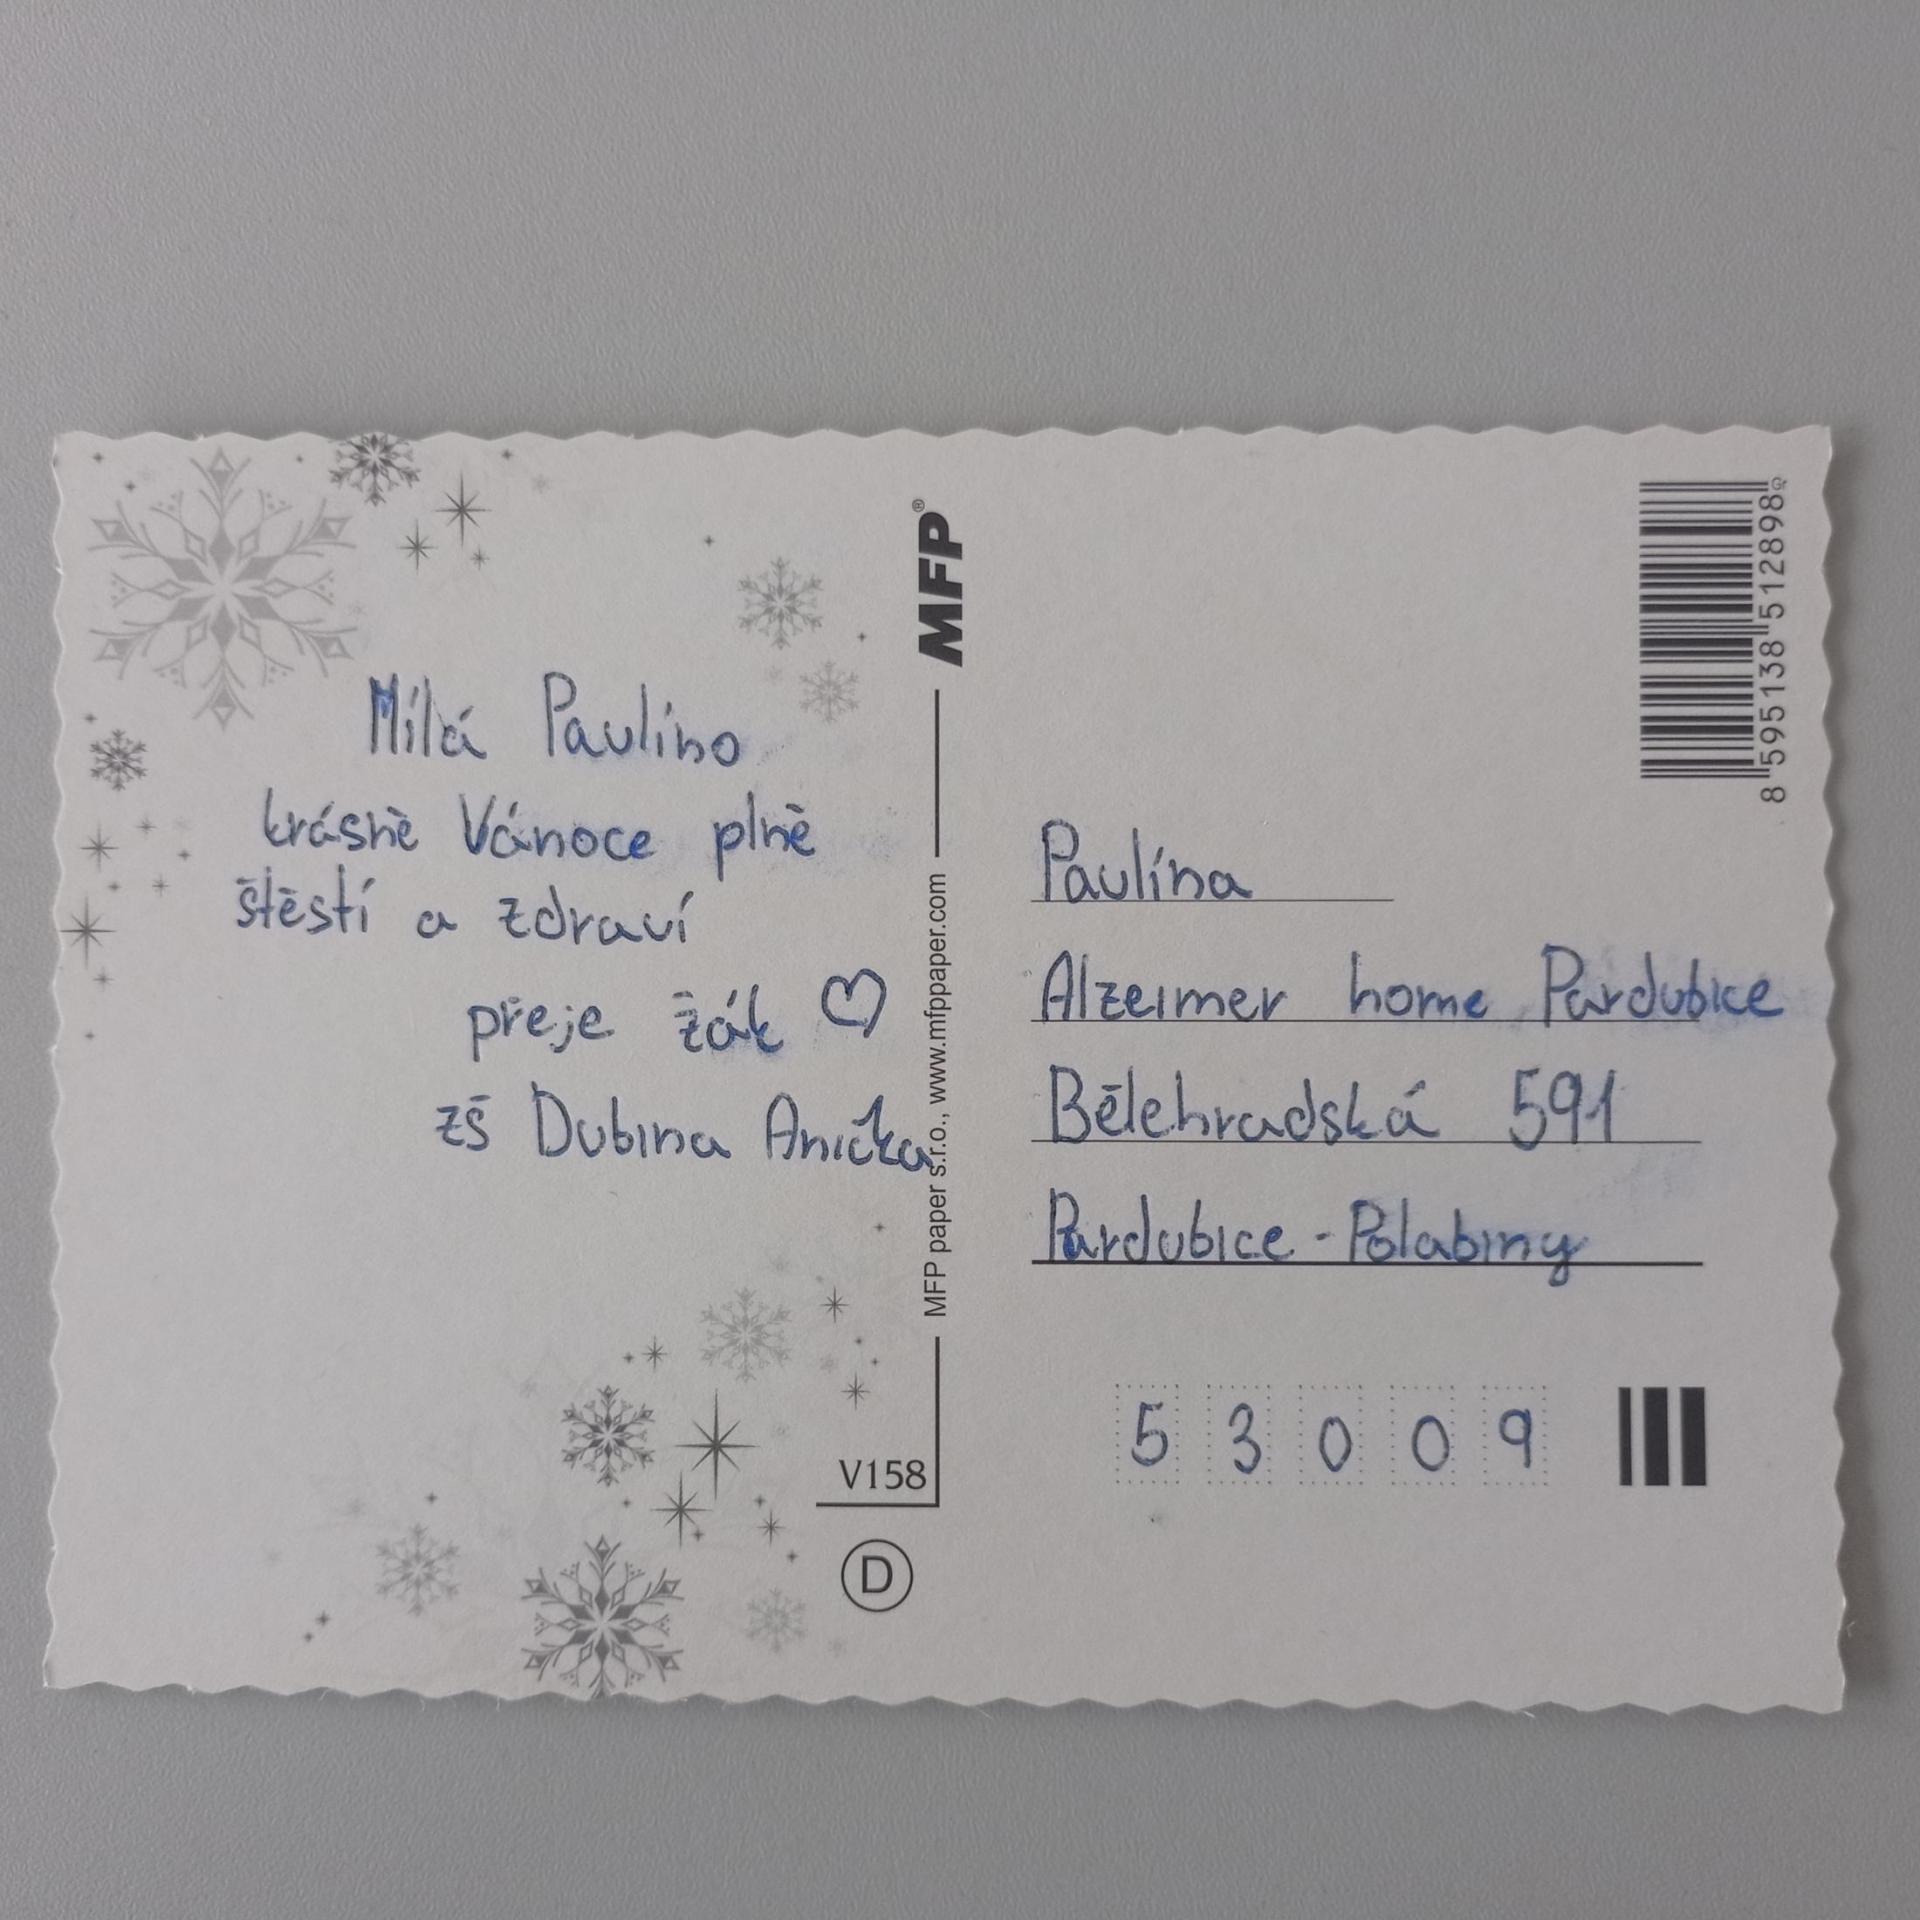 Milá Paulíno
krásně Vánoce plně
štěstí a zdraví
přeje žák ♡
zš Dubina Anička
MFP®
MFP paper s.r.o., www.mfppaper.com
V158
D
8 595138 512898
Paulína
Alzeimer home Pardubice
Bělehradská 591
Pardubice - Polabiny
5 3 0 0 9